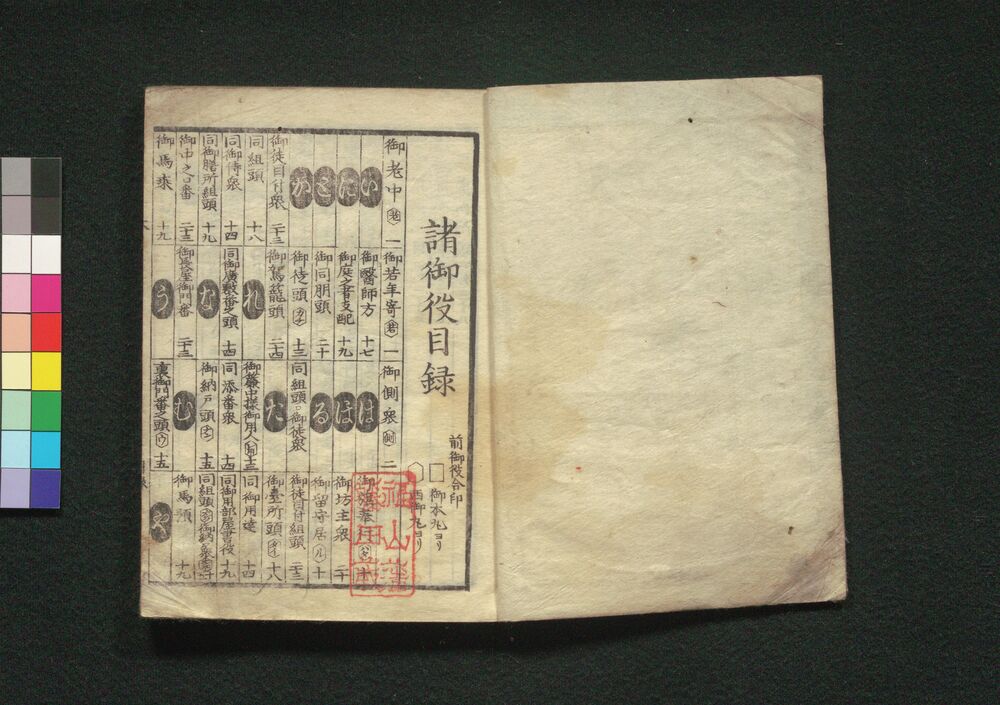 諸御役目録
前御役合印
□ 御本丸ヨリ
西御丸ヨリ
御老中 老 一 御若年寄 若 一 御側衆 側 二
い 御醫師方 十七 は 御旗奉行 ハタ
に 御庭之者支配 十九 ほ 御坊主衆 二十
と 御同朋頭 二十 る 御留守居 ル 十
か 御徒頭 カチ 十三 同組頭 御徒衆 御徒目付組頭 二十三
御徒目付衆 二十三 御駕籠頭 二十四 た 御臺所頭 十八
同組頭 十八 れ 御簾中様御用人 十三 同御用達 十四
同御侍衆 十四 同御廣敷番之頭 十四 同添番衆 十四 同御用部屋書役 十九
同御膳所組頭 十九 な 御納戸頭 十五 同組頭 御納戸衆
御中之口番 二十三 御長屋御門番 二十三 む 御馬預 十九
御馬乗 十九 う 裏御門番之頭 ウ 十五 や